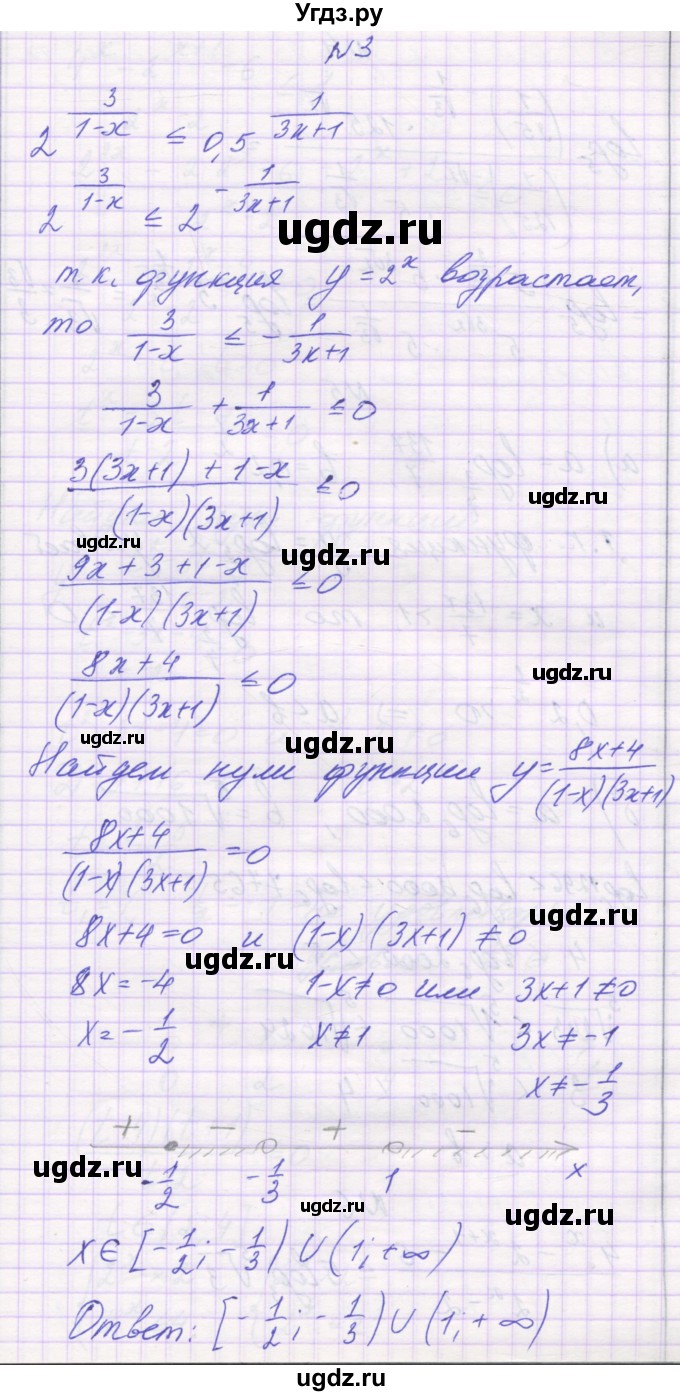 Угдз.ру
N3
2^(3/(1-x)) ≤ 0,5^(1/(3x+1))
2^(3/(1-x)) ≤ 2^(-1/(3x+1))
ugdz.ru
т.к. функция y=2^x возрастает,
то 3/(1-x) ≤ -1/(3x+1)
3/(1-x) + 1/(3x+1) ≤ 0
(3(3x+1)+1-x)/((1-x)(3x+1)) ≤ 0
ugdz.ru
ugdz.ru
(9x+3+1-x)/((1-x)(3x+1)) ≤ 0
(8x+4)/((1-x)(3x+1)) ≤ 0
ugdz.ru
ugdz.ru
ugdz.ru
Найдем нули функции y=(8x+4)/((1-x)(3x+1))
(8x+4)/((1-x)(3x+1)) = 0
ugdz.ru
8x+4=0 и (1-x)(3x+1)≠0
ugdz.ru
8x=-4 1-x≠0 или 3x+1≠0
x=-1/2 x≠1 3x≠-1
x≠-1/3
+ - + -
ugdz.ru
-1/2 -1/3 1 x
ugdz.ru
ugdz.ru
x∈[-1/2;-1/3)∪(1;+∞)
Ответ: [-1/2;-1/3)∪(1;+∞)
ugdz.ru
ugdz.ru